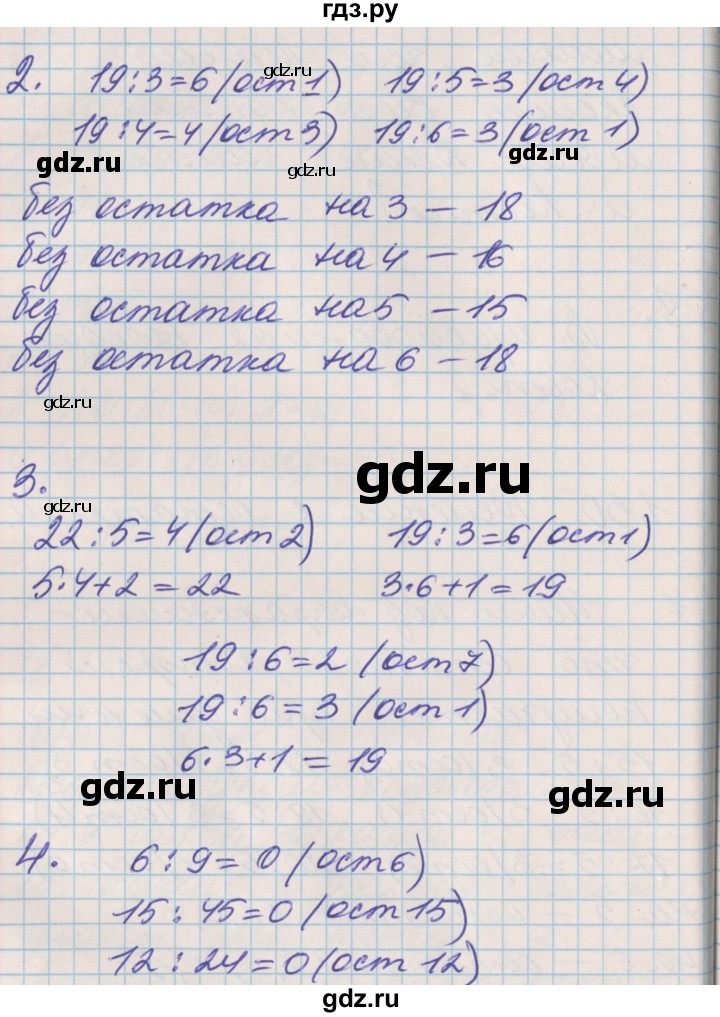 гдз.ру
2. 19:3=6(ост1) 19:5=3(ост4)
gdz.ru
19:4=4(ост3) 19:6=3(ост 1)
gdz.ru gdz.ru gdz.ru
без остатка на 3 – 18
без остатка на 4 – 16
без остатка на 5 – 15
без остатка на 6 – 18
gdz.ru
gdz.ru
3.
gdz.ru
22:5=4(ост2) 19:3=6(ост1)
5·4+2=22 3·6+1=19
19:6=2(ост7)
19:6=3(ост1)
6·3+1=19
gdz.ru gdz.ru
4. 6:9=0(ост6)
15:45=0(ост15)
12:24=0(ост12)
gdz.ru